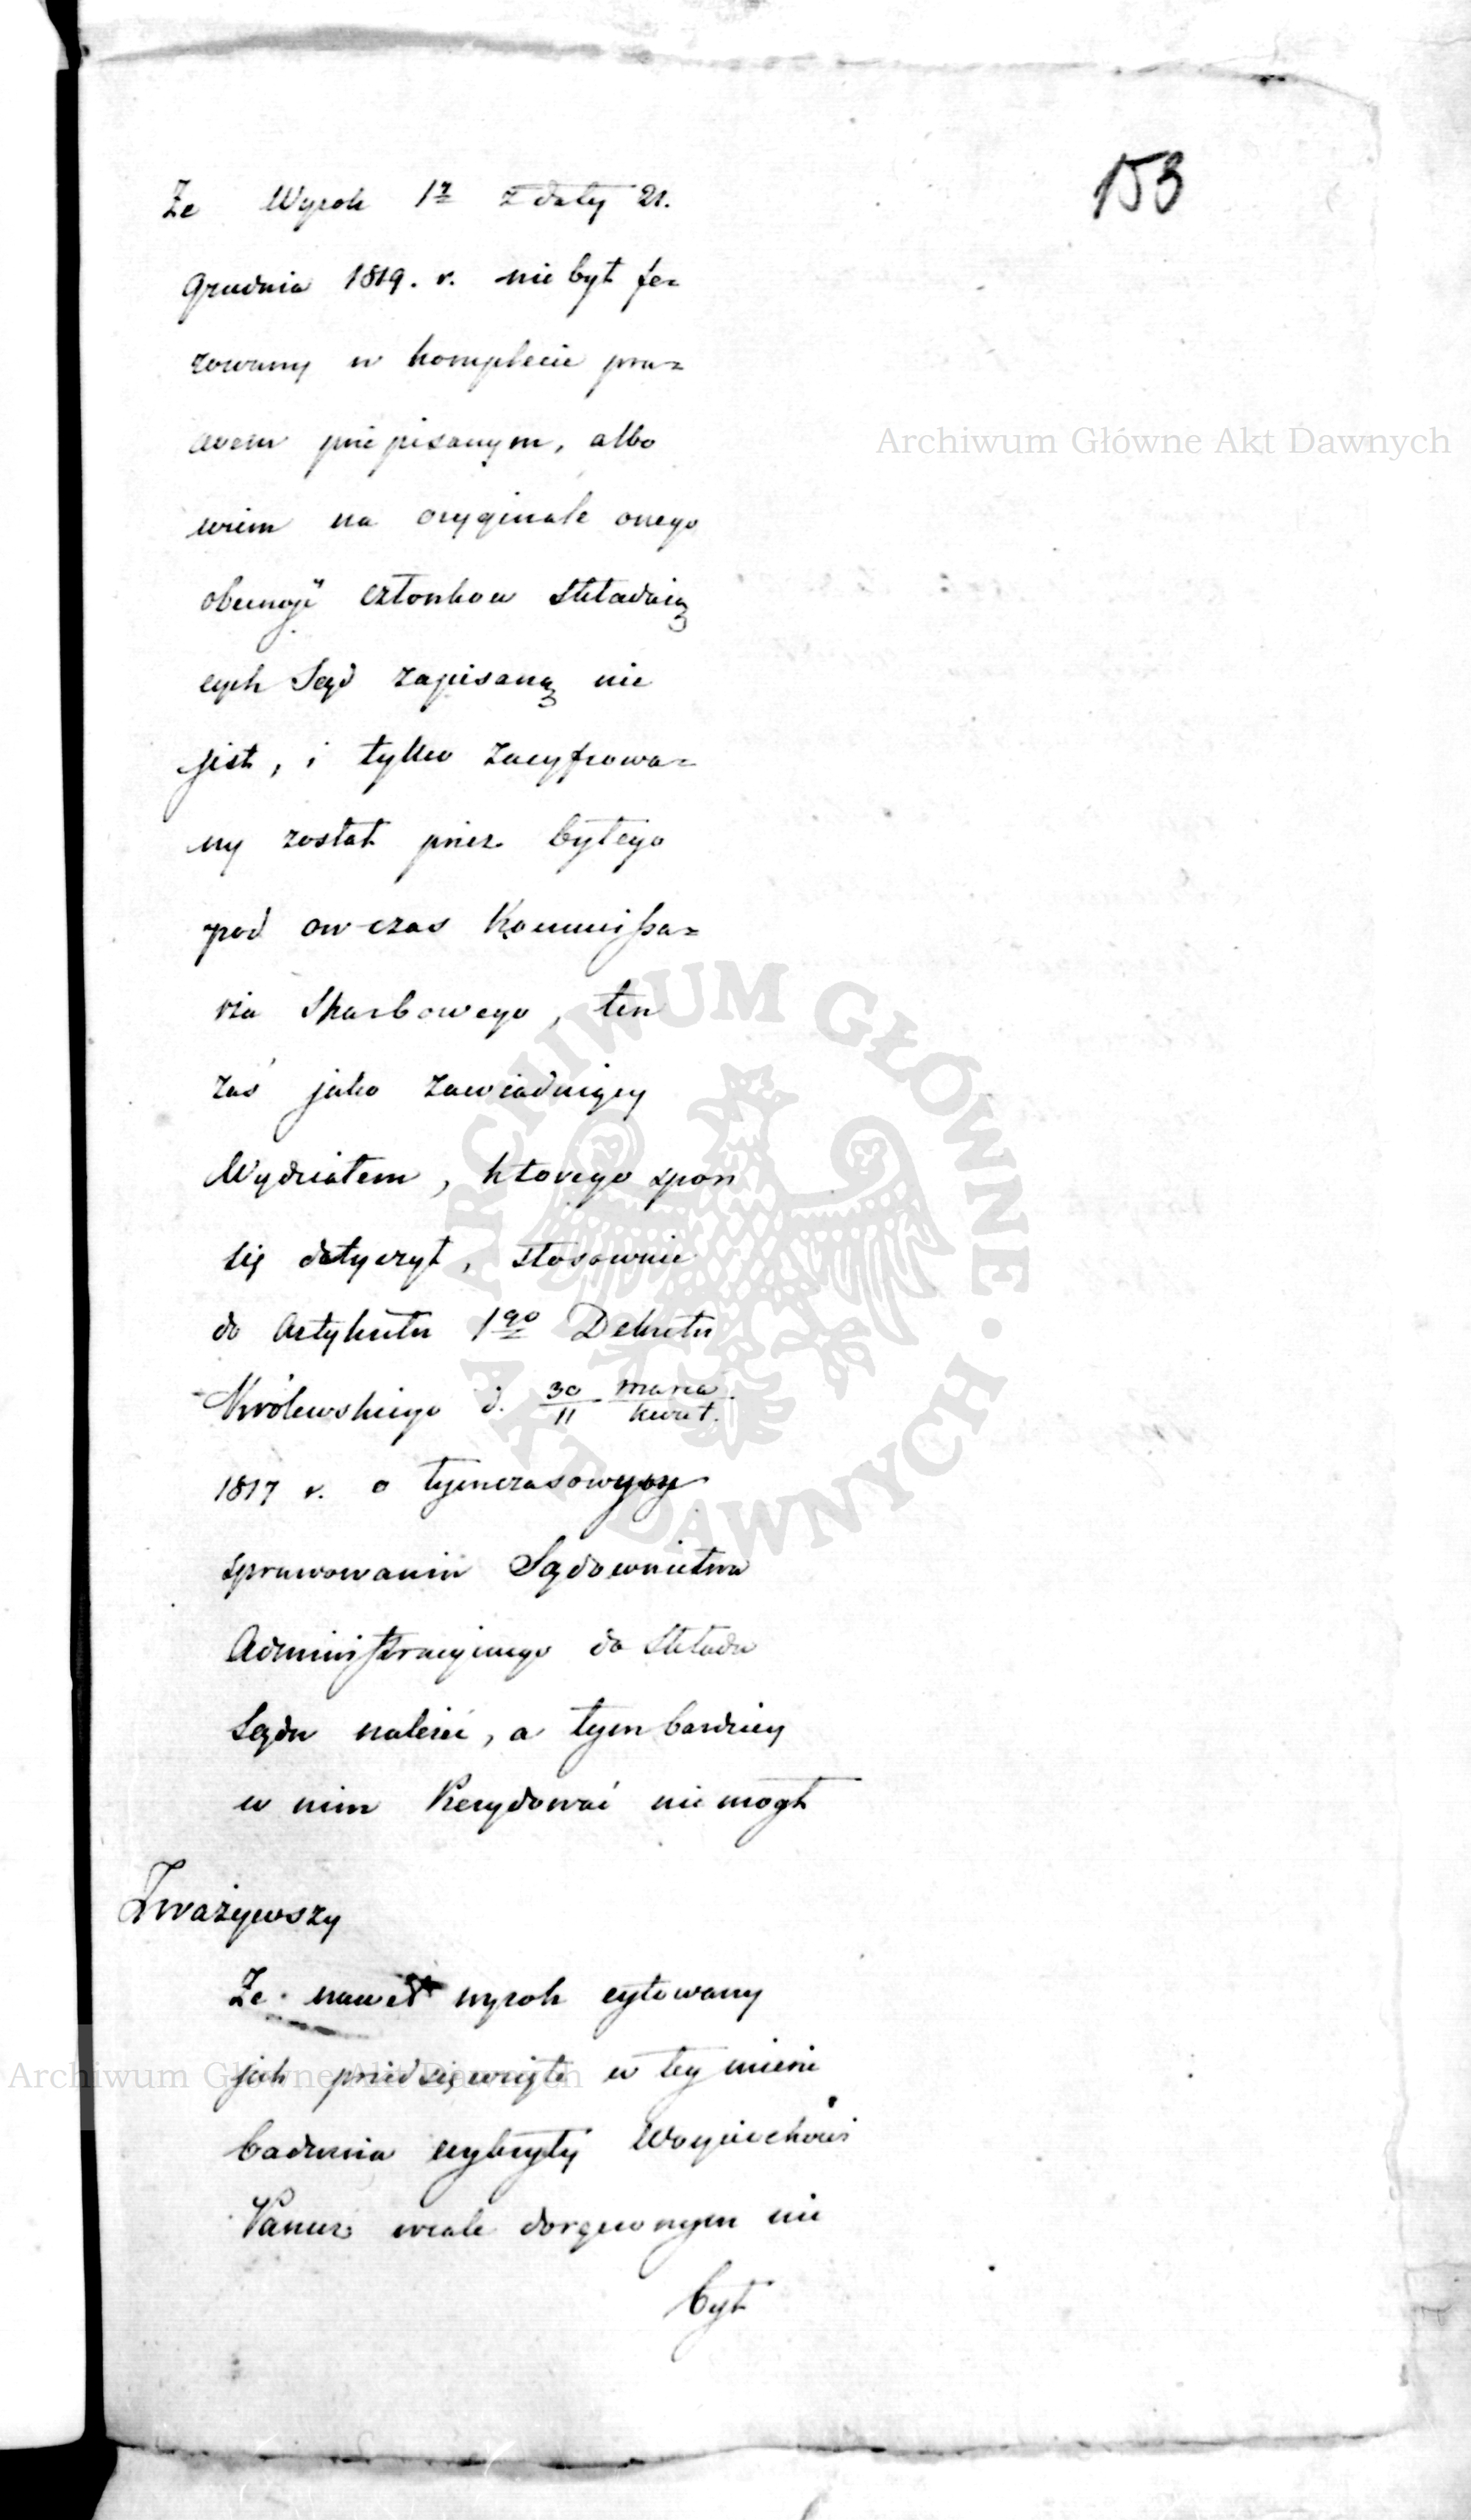 153
Że Wyrok 1y z daty 21.
Grudnia 1819. r. nie był fe=
rowany w komplecie pra=
wem przepisanym, albo
wiem na oryginale onego
obecność członkow składaią
cych Sąd zapisaną nie
jest, i tylko zacyfrowa=
ny został przez byłego
pod ow czas Kommissa=
rza Skarbowego, ten
zaś jako zawiaduiący
Wydziałem, ktorego spor
się dotyczył, stosownie
do Artykułu 1go Dekretu
Królewskiego d. 30/11 marca/kwiet.
1817 r. o tymczasowym
sprawowaniu Sądownictwa
Administracyinego do składu
Sądu należeć, a tym bardziey
w nim Prezydować nie mogł
Zważywszy
Że nawet wyrok cytowany
jak przedsięwzięte w tey mierze
badania wykryły Woyciechowi
wcale doręczonym nie
był
Archiwum Główne Akt Dawnych
ARCHIWUM GŁÓWNE · AKT DAWNYCH ·
Archiwum Główne Akt Dawnych